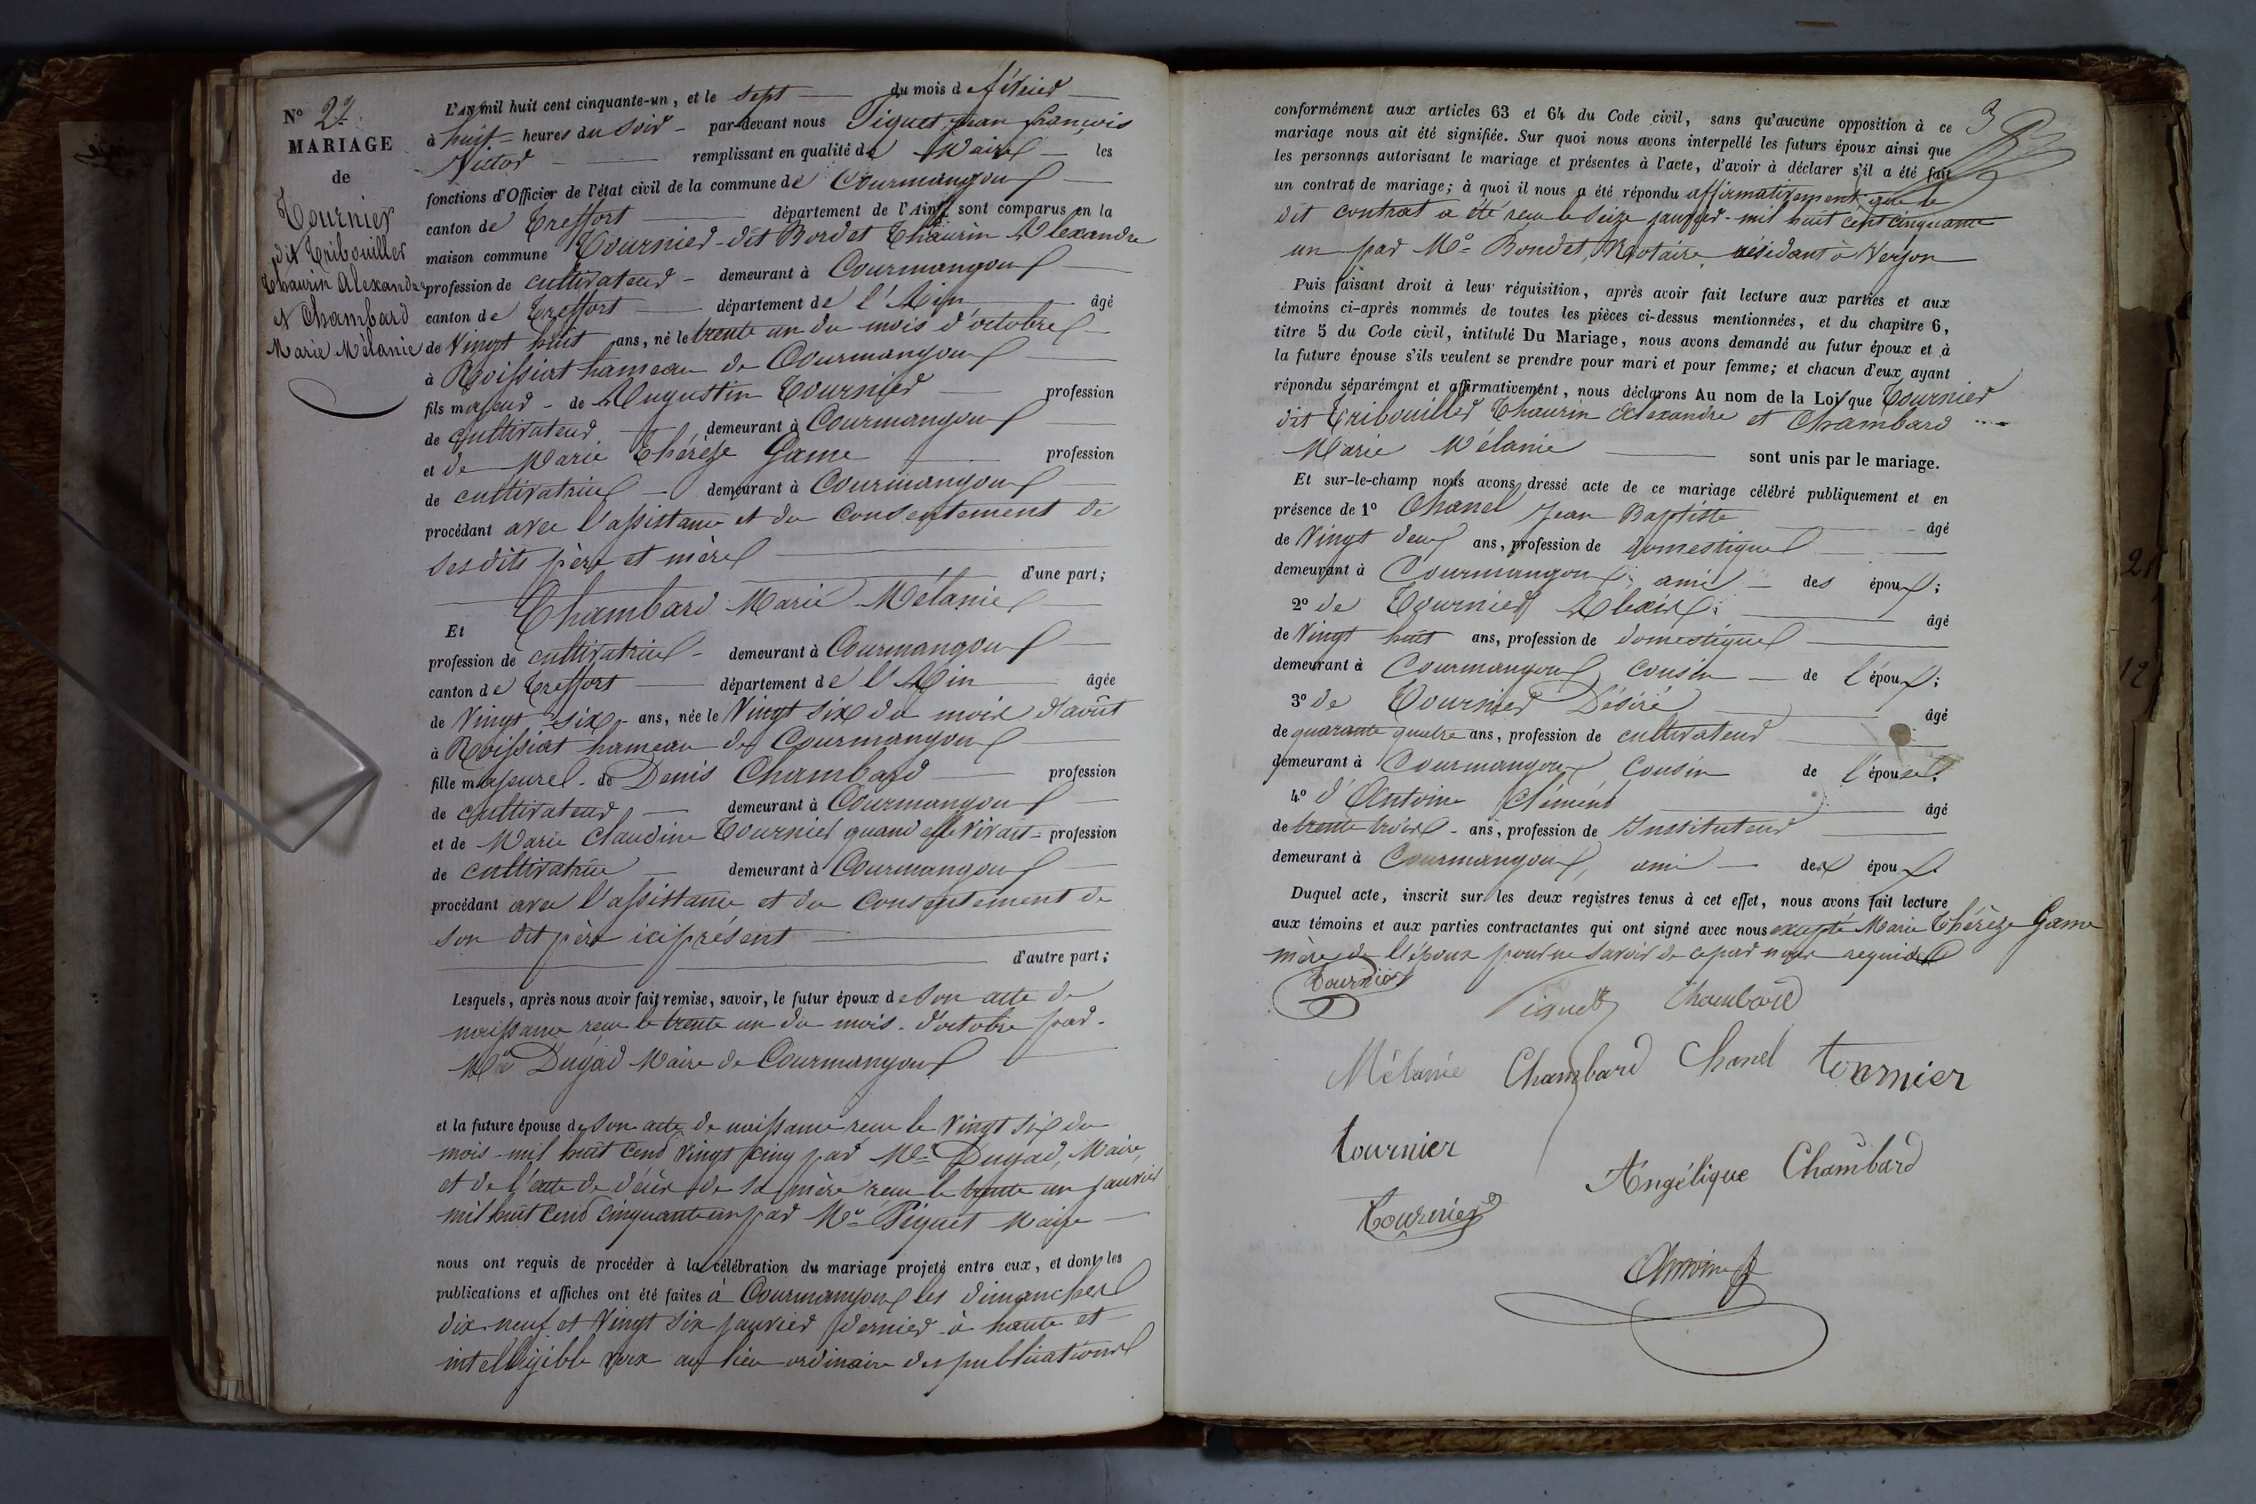 N° 2.
MARIAGE
de
Tournier
dit Tribouiller
Thaurin Alexandre
et Chambard
Marie Mélanie
L'AN mil huit cent cinquante-un, et le sept du mois de février
à huit heures du soir par-devant nous Piquet jean françois
Victor remplissant en qualité de Maire les
fonctions d'Officier de l'état civil de la commune de Courmangoux
canton de Treffort département de l'Ain, sont comparus en la
maison commune Tournier dit Bordet Thaurin Alexandre
profession de cultivateur demeurant à Courmangoux
canton de Treffort département de l'Ain âgé
de Vingt huit ans, né le trente un du mois d'octobre
à Roissiat hameau de Courmangoux
fils majeur de Augustin Tournier profession
de cultivateur demeurant à Courmangoux
et de Marie Thérèze Game profession
de cultivatrice demeurant à Courmangoux
procédant avec l'assistance et du consentement de
ses dits père et mère
d'une part;
Et Chambard Marie Mélanie
profession de cultivatrice demeurant à Courmangoux
canton de Treffort département de l'Ain âgée
de Vingt six ans, née le Vingt six du mois d'août
à Roissiat hameau de Courmangoux
fille majeure de Denis Chambard profession
de cultivateur demeurant à Courmangoux
et de Marie Claudine Tournier quand elle vivait profession
de cultivatrice demeurant à Courmangoux
procédant avec l'assistance et du consentement de
son dit père ici présent
d'autre part;
Lesquels, après nous avoir fait remise, savoir, le futur époux de son acte de
naissance reçu le trente un du mois d'octobre par
Mr Dugad Maire de Courmangoux
et la future épouse de son acte de naissance reçu le Vingt six du
mois mil huit cent vingt cinq par Mr Dugad, Maire,
et de l'acte de décès de sa mère reçu le trente un janvier
mil huit cent cinquante un par Mr Piquet Maire
nous ont requis de procéder à la célébration du mariage projeté entre eux, et dont les
publications et affiches ont été faites à Courmangoux les dimanches
dix neuf et Vingt six janvier dernier à haute et
intelligible voix au lieu ordinaire des publications
3
conformément aux articles 63 et 64 du Code civil, sans qu'aucune opposition à ce
mariage nous ait été signifiée. Sur quoi nous avons interpellé les futurs époux ainsi que
les personnes autorisant le mariage et présentes à l'acte, d'avoir à déclarer s'il a été fait
un contrat de mariage; à quoi il nous a été répondu affirmativement que le
dit contrat a été reçu le seize janvier mil huit cent cinquante
un par Me Bondet, Notaire résidant à Verjon
Puis faisant droit à leur réquisition, après avoir fait lecture aux parties et aux
témoins ci-après nommés de toutes les pièces ci-dessus mentionnées, et du chapitre 6,
titre 5 du Code civil, intitulé Du Mariage, nous avons demandé au futur époux et à
la future épouse s'ils veulent se prendre pour mari et pour femme; et chacun d'eux ayant
répondu séparément et affirmativement, nous déclarons Au nom de la Loi que Tournier
dit Tribouiller Thaurin Alexandre et Chambard
Marie Mélanie sont unis par le mariage.
Et sur-le-champ nous avons dressé acte de ce mariage célébré publiquement et en
présence de 1° Chanel Jean Baptiste âgé
de Vingt deux ans, profession de domestique
demeurant à Courmangoux, ami des époux;
2° de Tournier Alexis âgé
de Vingt huit ans, profession de domestique
demeurant à Courmangoux, cousin de l'époux;
3° de Tournier Désiré âgé
de quarante quatre ans, profession de cultivateur
demeurant à Courmangoux, cousin de l'épouse;
4° d'Antoine Clément âgé
de trente trois ans, profession de Instituteur
demeurant à Courmangoux, ami des époux.
Duquel acte, inscrit sur les deux registres tenus à cet effet, nous avons fait lecture
aux témoins et aux parties contractantes qui ont signé avec nous excepté Marie Thérèze Game
mère de l'époux pour ne savoir de ce par nous requise
Tournier
Piquet Chambard
Mélanie Chambard Chanel tournier
tournier
Angélique Chambard
Tournier
Antoine